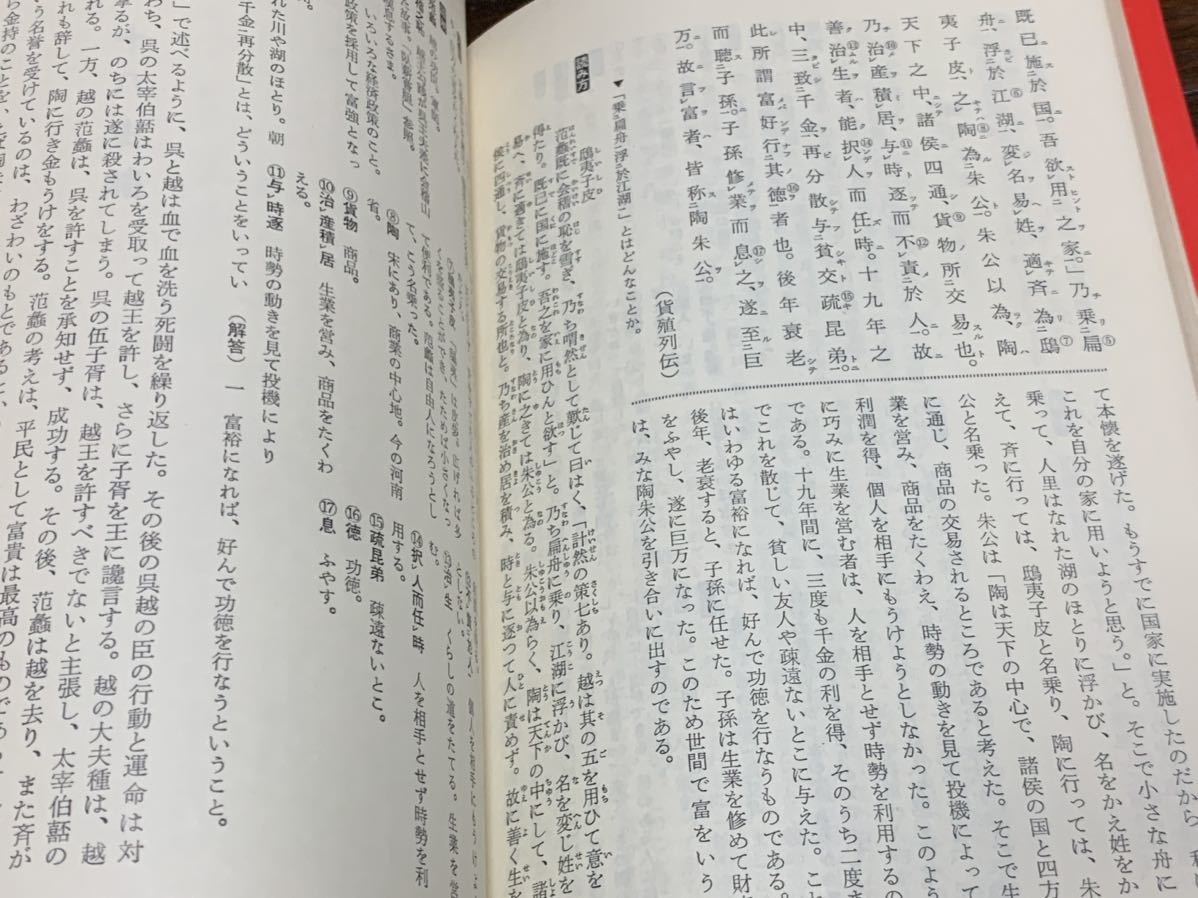 既已施於国。吾欲用之家。」乃乗扁⑤
舟、浮於江湖⑥、変名易姓、適斉為鴟⑦
夷子皮、之陶⑧為朱公。朱公以為、陶
天下之中、諸侯四通、貨物⑨所交易也。
乃治産積居⑩、与時逐⑪而不責於人⑫。故
善治生⑬者、能択人而任時⑭。十九年之
中、三致千金、再分散与貧交疏昆弟⑮。
此所謂富好行其徳⑯者也。後年衰老
而聴子孫。子孫修業而息⑰之、遂至巨
万。故言富者、皆称陶朱公。
（貨殖列伝）
▼「乗扁舟浮於江湖」とはどんなことか。
て本懐を遂げた。もうすでに国家に実施したのだから、
これを自分の家に用いようと思う。」と。そこで小さな舟に
乗って、人里はなれた湖のほとりに浮かび、名をかえ姓をか
えて、斉に行っては、鴟夷子皮と名乗り、陶に行っては、朱
公と名乗った。朱公は「陶は天下の中心で、諸侯の国と四方
に通じ、商品の交易されるところであると考えた。そこで生
業を営み、商品をたくわえ、時勢の動きを見て投機によって
利潤を得、個人を相手にもうけようとしなかった。このよう
に巧みに生業を営む者は、人を相手とせず時勢を利用するの
である。十九年間に、三度も千金の利を得、そのうち二度ま
でこれを散じて、貧しい友人や疎遠ないとこに与えた。これ
はいわゆる富裕になれば、好んで功徳を行なうものである。
後年、老衰すると、子孫に任せた。子孫は生業を修めて財
をふやし、遂に巨万になった。このため世間で富をいう
は、みな陶朱公を引き合いに出すのである。
読み方
鴟夷子皮
范蠡既に会稽の恥を雪ぎ、乃ち喟然として歎じて曰はく、「計然の策七あり。越は其の五を用ひて意を
得たり。既已に国に施す。吾之を家に用ひんと欲す」と。乃ち扁舟に乗り、江湖に浮かび、名を変じ姓を
易へ、斉に適きては鴟夷子皮と為り、陶に之きては朱公と為る。朱公以為らく、陶は天下の中にして、諸
侯に四通し、貨物の交易する所也と。乃ち産を治め居を積み、時と与に逐つて人に責めず。故に善く生を
いろいろな経済政策のこと。
政策を採用して富強となっ
れた川や湖のほとり。
て、こう名乗った。
⑧陶 宋にあり、商業の中心地。今の河南
省。
⑨貨物 商品。
⑩治産積居 生業を営み、商品をたくわ
える。
⑪与時逐 時勢の動きを見て投機により
⑬治生 くらしの道をたてる。生業を営
む。
⑭択人而任時 人を相手とせず時勢を利
用する。
⑮疏昆弟 疎遠ないとこ。
⑯徳 功徳。
⑰息 ふやす。
千金再分散」とは、どういうことをいってい
（解答） 一 富裕になれば、好んで功徳を行なうということ。
」で述べるように、呉と越は血で血を洗う死闘を繰り返した。その後の呉越の臣の行動と運命は対
わち、呉の太宰伯嚭はわいろを受取って越王を許し、さらに子胥を王に讒言する。越の大夫種は、越
するが、のちには遂に殺されてしまう。呉の伍子胥は、越王を許すべきでないと主張し、太宰伯嚭の
れる。一方、越の范蠡は、呉を許すことを承知せず、成功する。その後、范蠡は越を去り、また斉が
れも辞して、陶に行き金もうけをする。范蠡の考えは、平民として富貴は最高のものであ
う名誉を受けているのは、わざわいのもとであると、